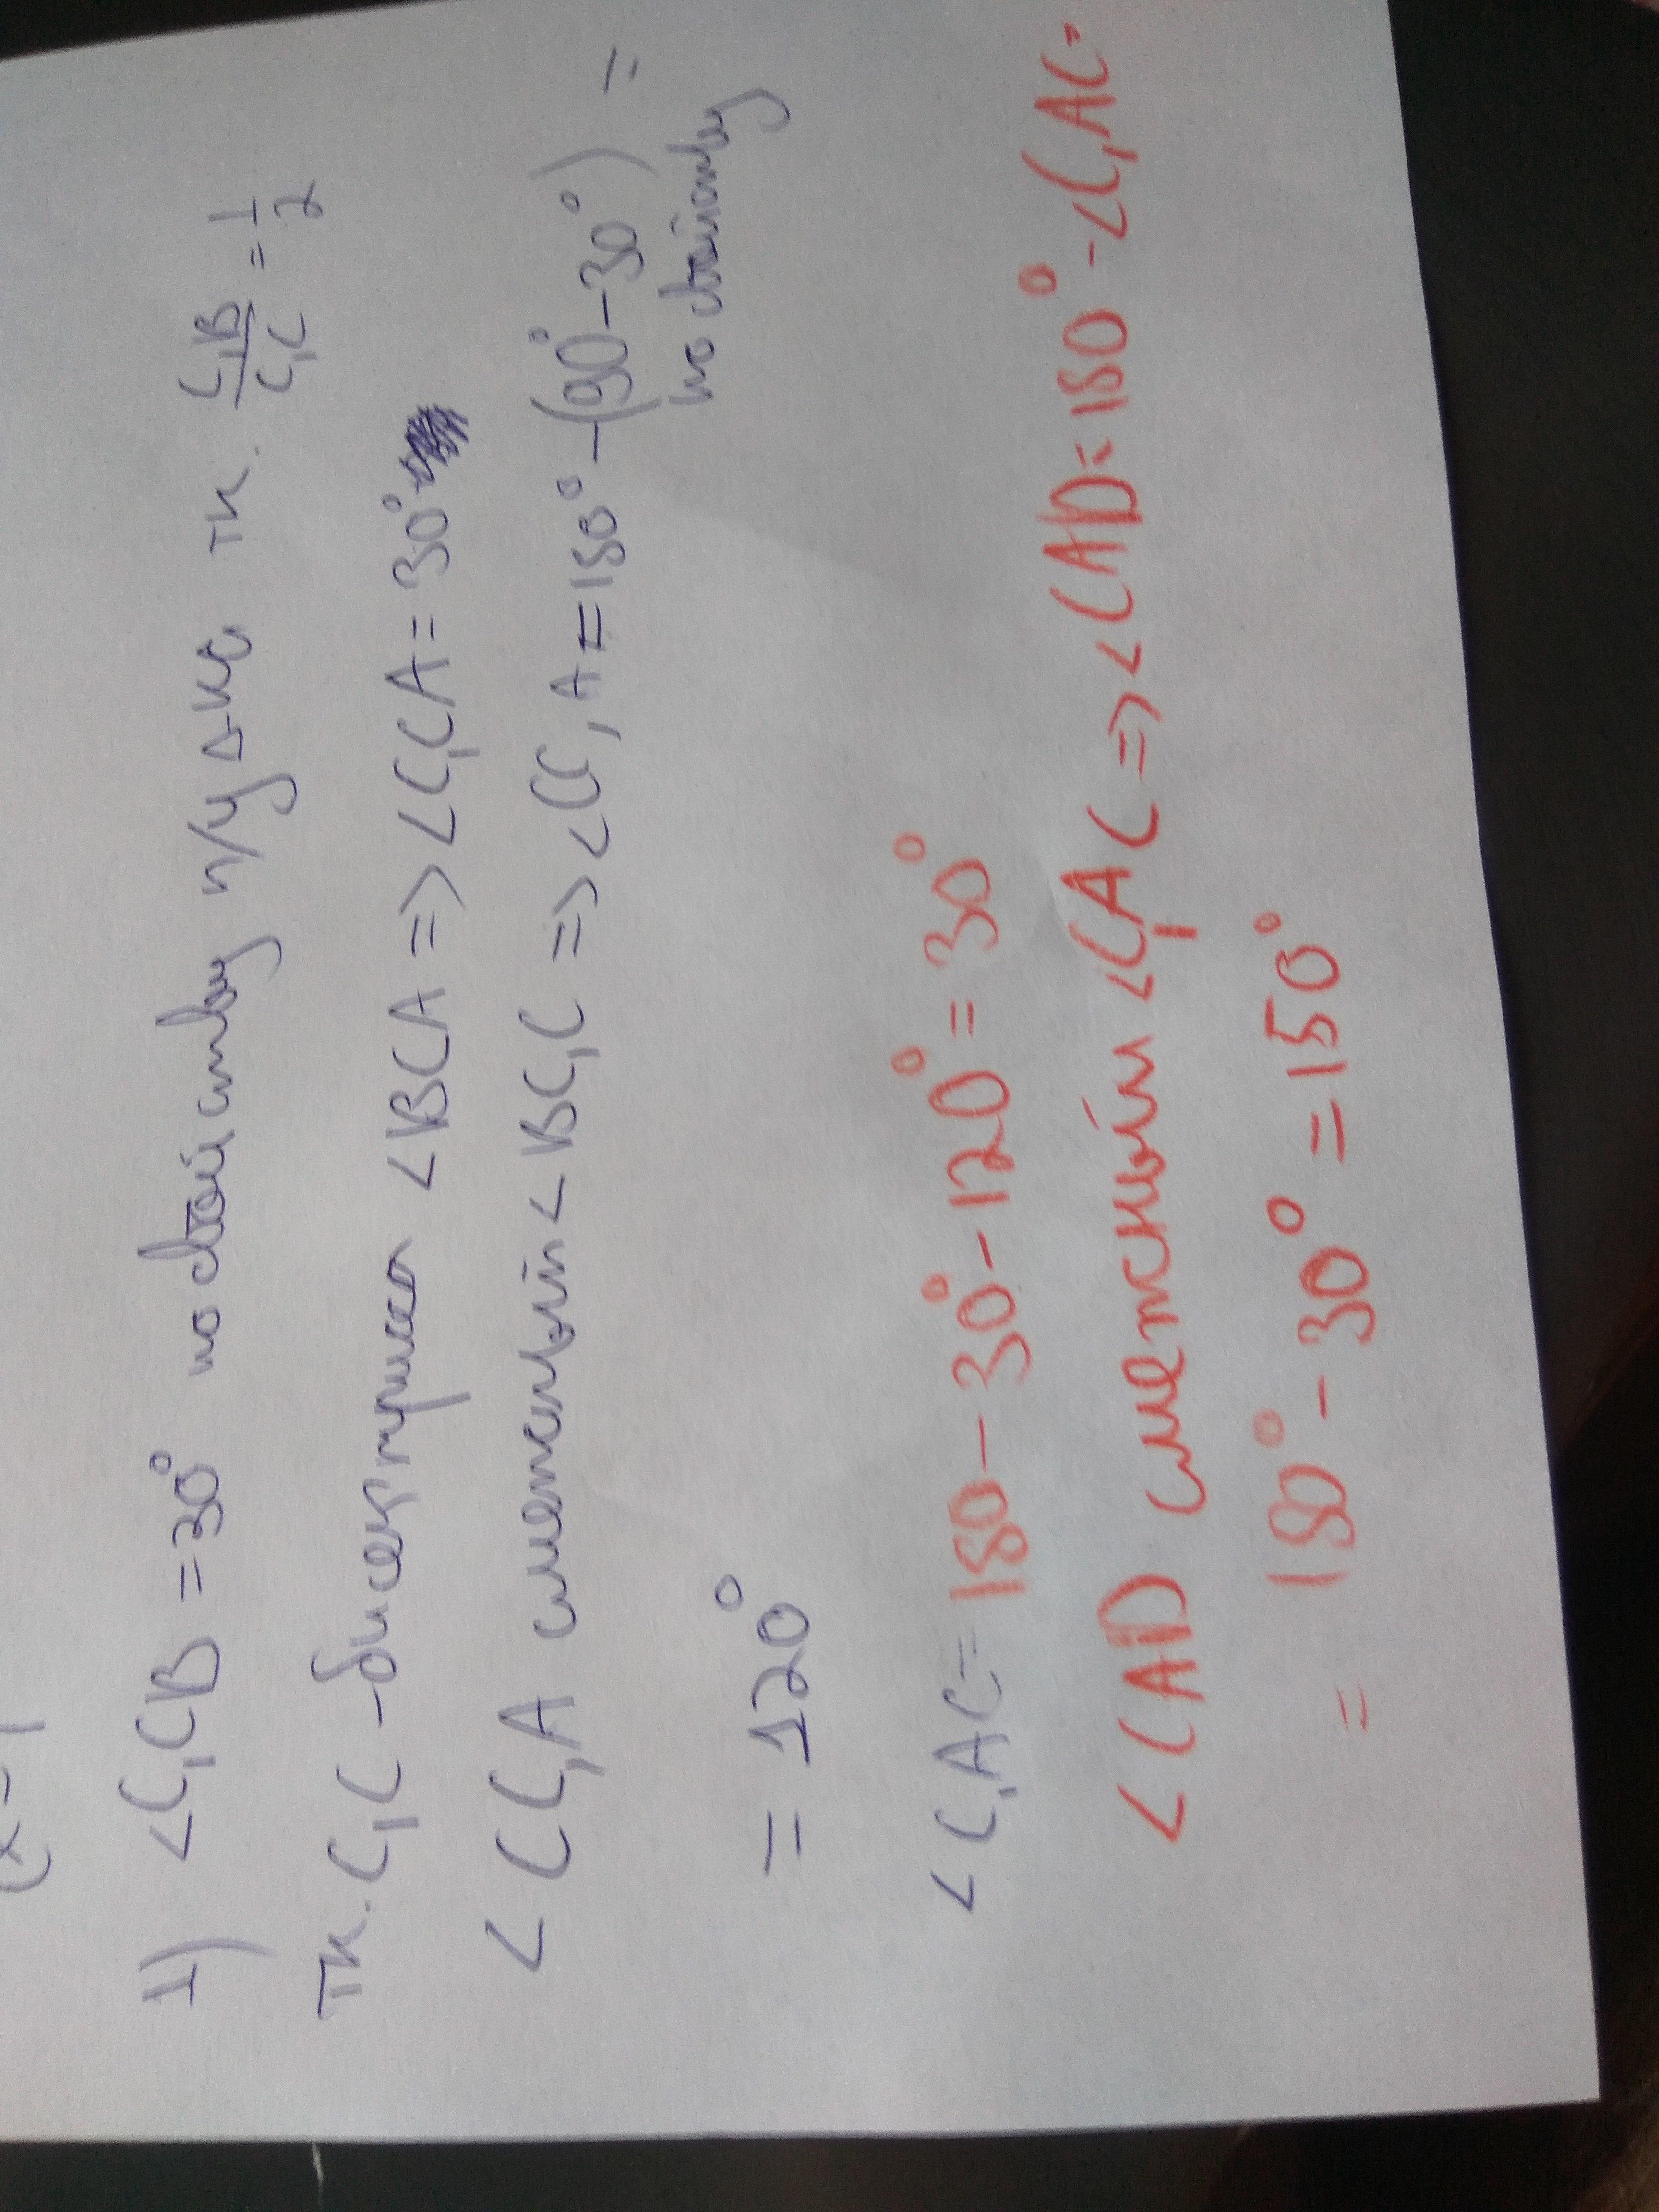 1) <C₁CB = 30° по свойству п/у Δ-ка, тк. C₁B/C₁C = 1/2
Тк. C₁C - биссектриса <BCA => <C₁CA = 30°
<CC₁A смежный < BC₁C => <CC₁A = 180° - (90° - 30°) =
по свойству
= 120°
<C₁AC = 180 - 30° - 120° = 30°
<CAD смежный <C₁AC => <CAD = 180° - <C₁AC =
= 180° - 30° = 150°